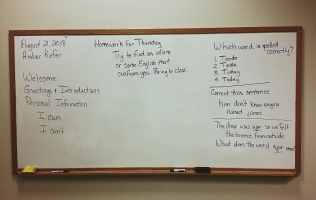 August 21, 2018
Amber Kefer
Welcome
Greetings + Introductions
Personal Information
I can
I can't
Homework for Thursday
Try to find an idiom
or some English that
confuses you. Bring to class.
Which word is spelled
correctly?
1 Toode
2 Toda
3 Today
4 Today
Correct this sentence
him don't know anyone
named James
The door was ajar so we felt
the breeze from outside
What does the word ajar mean?